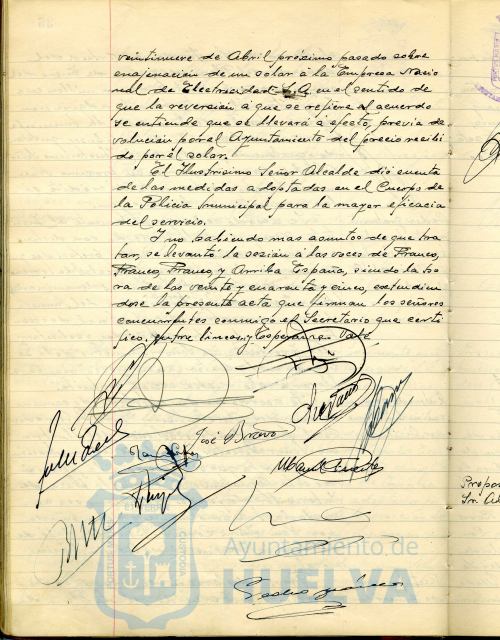 veintinueve de Abril próximo pasado sobre
enajenación de un solar á la Empresa Nacio
nal de Electricidad S.A. en el sentido de
que la reversión a que se refiere el acuerdo
se entiende que se llevará a efecto, previa de
volución por el Ayuntamiento del precio recibi
do por el solar.
El Ilustrísimo Señor Alcalde dió cuenta
de las medidas adoptadas en el Cuerpo de
la Policía municipal para la mayor eficacia
del servicio.
Y no habiendo mas asuntos de que tra
tar, se levantó la sesión á las voces de Franco,
Franco, Franco y Arriba España, siendo la ho
ra de las veinte y cuarenta y cinco, extendién
dose la presente acta que firman los señores
concurrentes conmigo el Secretario que certi
fico, entre lineas, y Esperanza Vale.
José Bravo
Pedro
Propo
Sr. Al
Ayuntamiento de
HUELVA